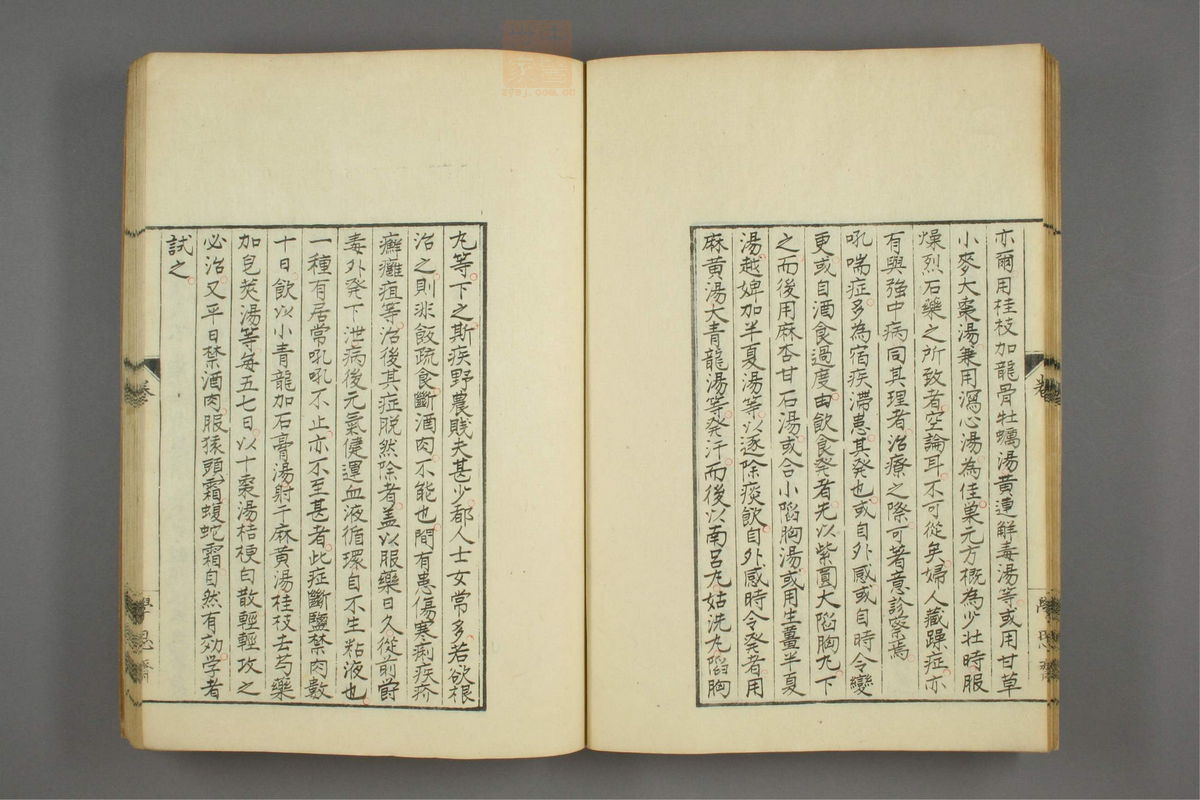 亦爾用桂枝加龍骨牡蠣湯黃連解毒湯等或用甘草
小麥大棗湯兼用瀉心湯為佳巢元方概為少壯時服
燥烈石藥之所致者空論耳不可從矣婦人藏躁症亦
有與強中病同其理者治療之際可著意診察焉
吼喘症多為宿疾滯患其發也或自外感或自時令變
更或自酒食過度由飲食發者先以紫貟大陷胸丸下
之而後用麻杏甘石湯或合小陷胸湯或用生薑半夏
湯越婢加半夏湯等以逐除痰飲自外感時令發者用
麻黃湯大青龍湯等發汗而後以南呂丸姑洗丸陷胸
丸等下之斯疾野農賤夫甚少都人士女常多若欲根
治之則非飯疏食斷酒肉不能也間有患傷寒痢疾疥
癬癰疽等治後其症脱然除者蓋以服藥日久從前欝
毒外發下泄病後元氣健運血液循環自不生粘液也
一種有居常吼吼不止亦不至甚者此症斷鹽禁肉數
十日飲以小青龍加石膏湯射干麻黃湯桂枝去芍藥
加皂莢湯等每五七日以十棗湯桔梗白散輕輕攻之
必治又平日禁酒肉服猿頭霜蝮蛇霜自然有効学者
試之
卷
學思齋